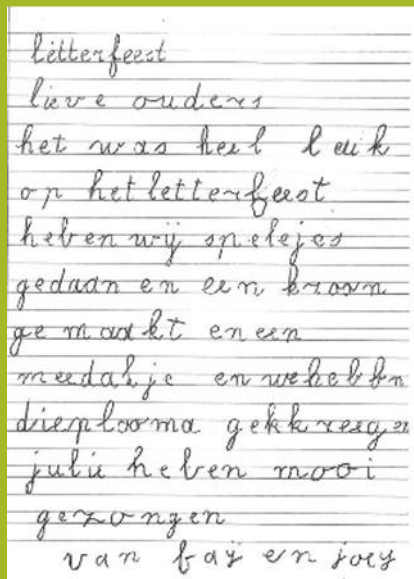 letterfeest
lieve ouders
het was heel leuk
op het letterfeest
heben wij spelejes
gedaan en een kroon
ge maakt en een
meedalje en we hebbn
dieplooma gekkreegen
julie heben mooi
gezongen
van fay en joey